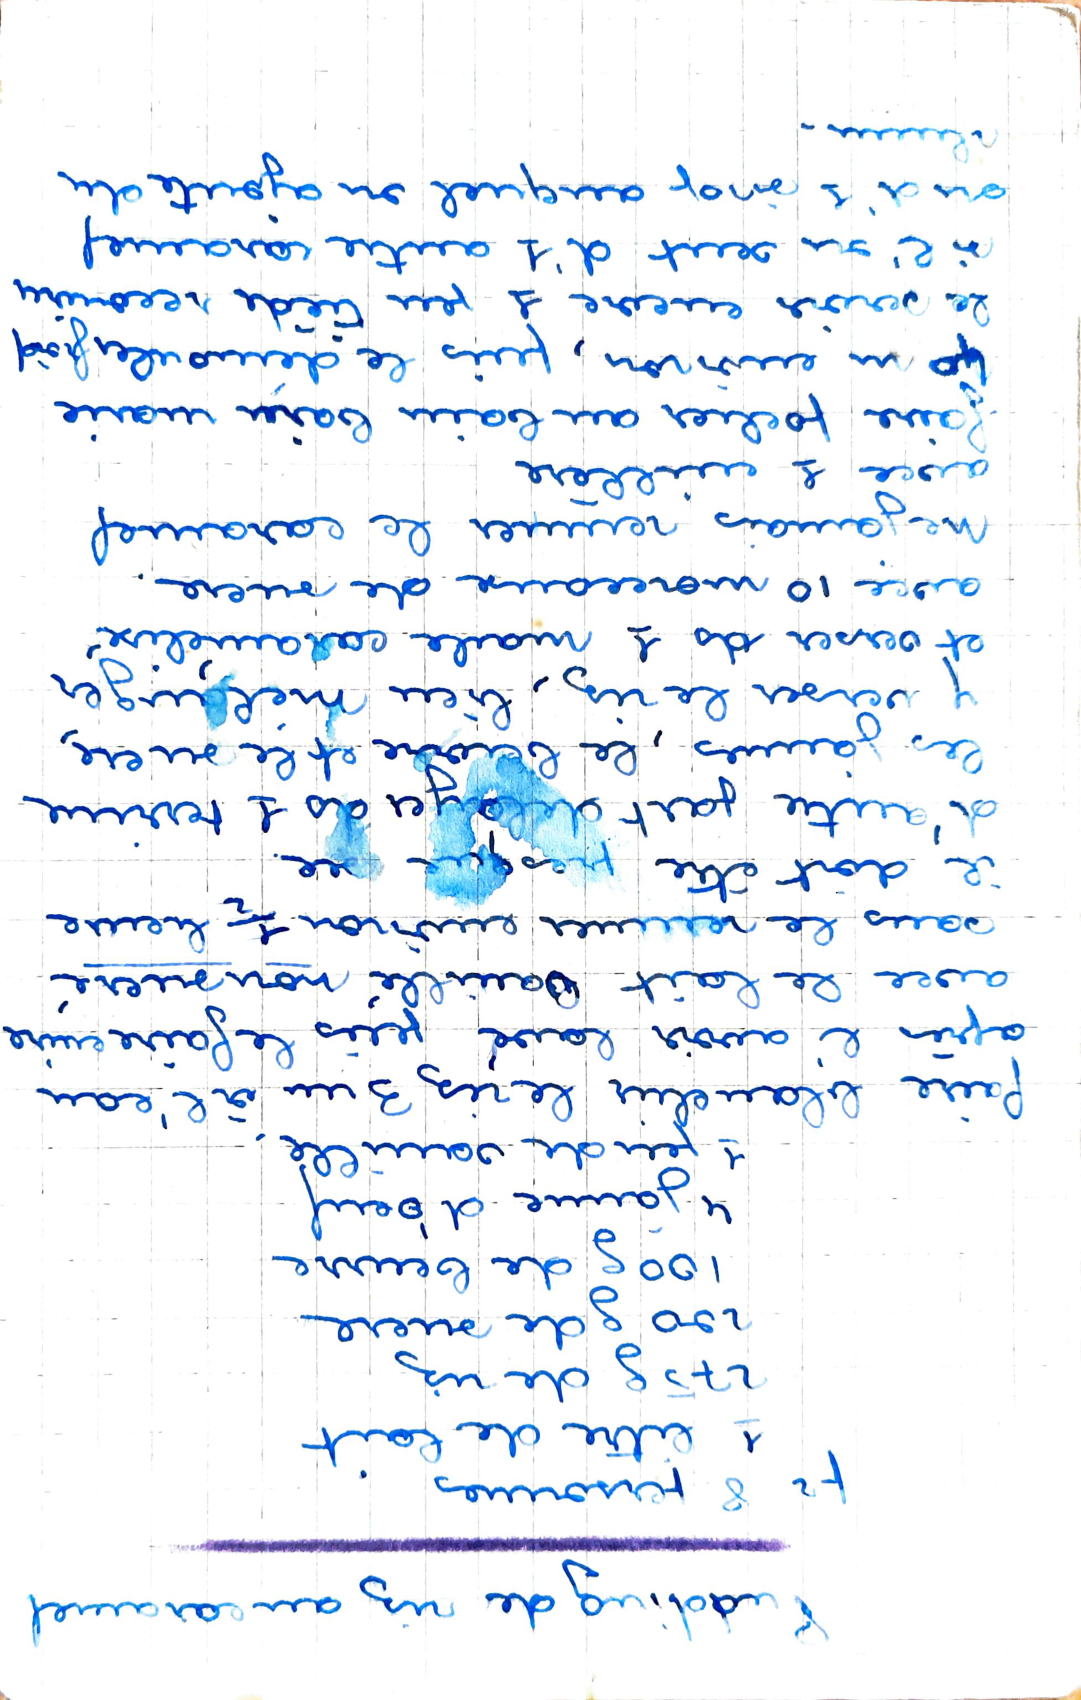 Pudding de riz au caramel
pr 8 personnes
1 litre de lait
275 g de riz
250 g de sucre
100 g de beurre
4 jaune d'oeuf
1 peu de vanille,
faire blanchir le riz 3 mn à l'eau
après l'avoir lavé, puis le faire cuire
avec le lait vanillé, non sucré,
sans le remuer environ 1/2 heure
il doit être presque sec.
d'autre part mélanger ds 1 terrine
les jaunes, le beurre et le sucre,
y verser le riz, bien mélanger,
et verser ds 1 moule caramélisé,
avec 10 morceaux de sucre.
Ne jamais remuer le caramel
avec 1 cuillère
faire pocher au bain marie
40 mn environ, puis le démouler froid
le servir encore 1 peu tiède recouvert
si l'on veut d'1 autre caramel
ou d'1 sirop auquel on ajoute du
rhum.